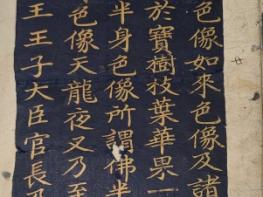 色像如來色像及諸
於寶樹枝葉華果一
半身色像所謂佛半
色像天龍夜叉乃至
王王子大臣官長